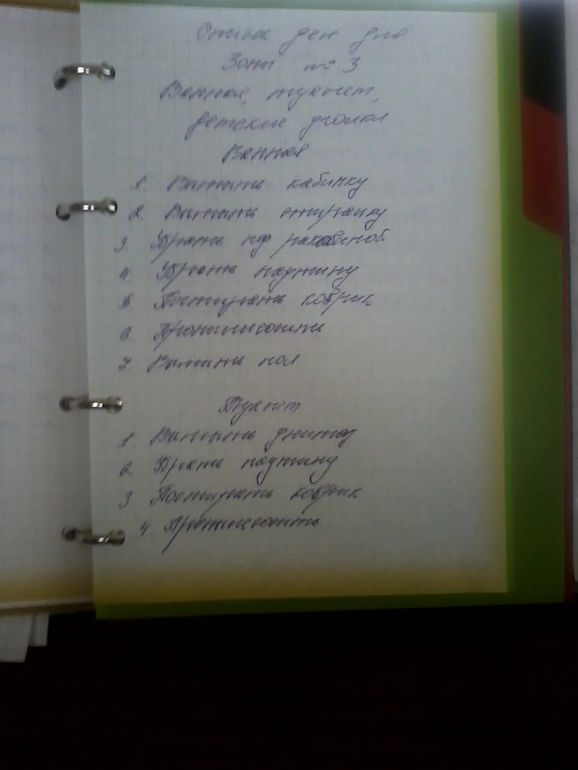 Список дел для
Зоны № 3
Ванная, туалет,
детские уголки
Ванная
1. Вымыть кабинку
2. Вымыть стиралку
3. Убрать под раковиной
4. Убрать паутину
5 Постирать коврик
6. Пропылесосить
7. Вымыть пол
Туалет
1. Вымыть унитаз
2. Убрать паутину
3. Постирать коврик
4 Пропылесосить